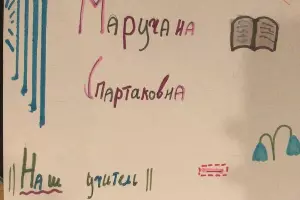 Маручана
Спартаковна
||Наш учитель||